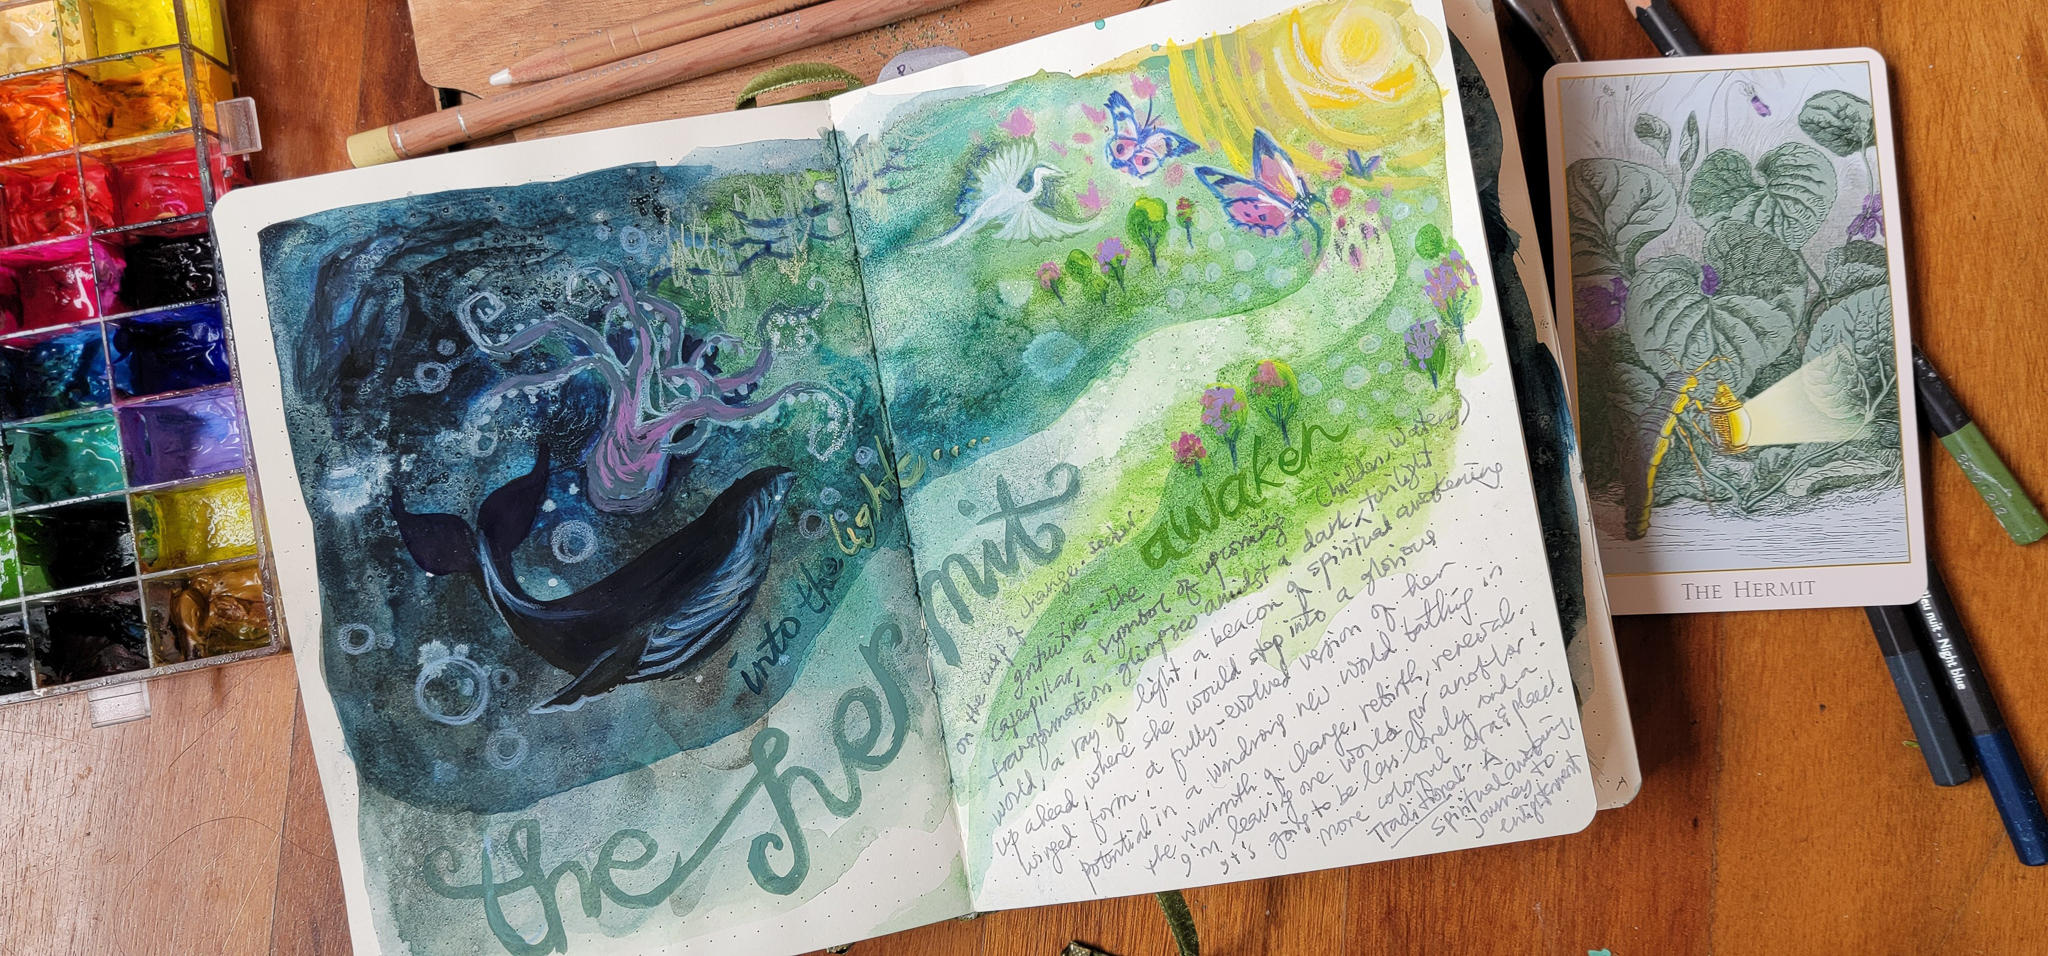 into the light...
the hermit
awaken
on the cusp of change. seeker.
intuitive: the
caterpillar, a symbol of upcoming (hidden, watery)
transformation glimpsed amidst a dark, twilight
world, a ray of light, a beacon of spiritual awakening
up ahead, where she would step into a glorious
winged form, a fully-evolved version of her
potential in a wondrous new world bathing in
the warmth of change, rebirth, renewal.
I'm leaving one world for another!
it's going to be less lonely and a
more colorful era & place.
Traditional: A
spiritual awakening,
journey to
enlightenment
THE HERMIT
bleu nuit - Night blue